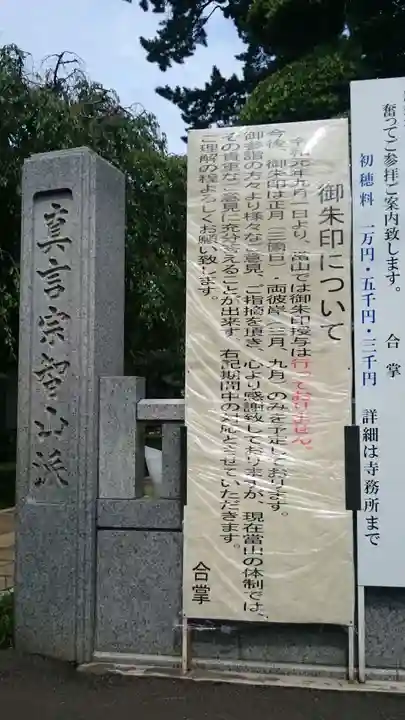 奮ってご参拝ご案内致します。
初穂料 一万円・五千円・三千円
合掌 詳細は寺務所まで
御朱印について
令和元年九月一日より、當山では御朱印授与は行っておりません。
今後、御朱印は正月(三箇日)・両彼岸(三月、九月)のみを予定しております。
御参詣の方々より様々なご意見、ご指摘を頂き、心より感謝致しておりますが、現在當山の体制では、
その貴重なご意見に充分応えることが出来ず、右記期間中の対応とさせていただきます。
ご理解の程よろしくお願い致します。
合掌
真言宗智山派